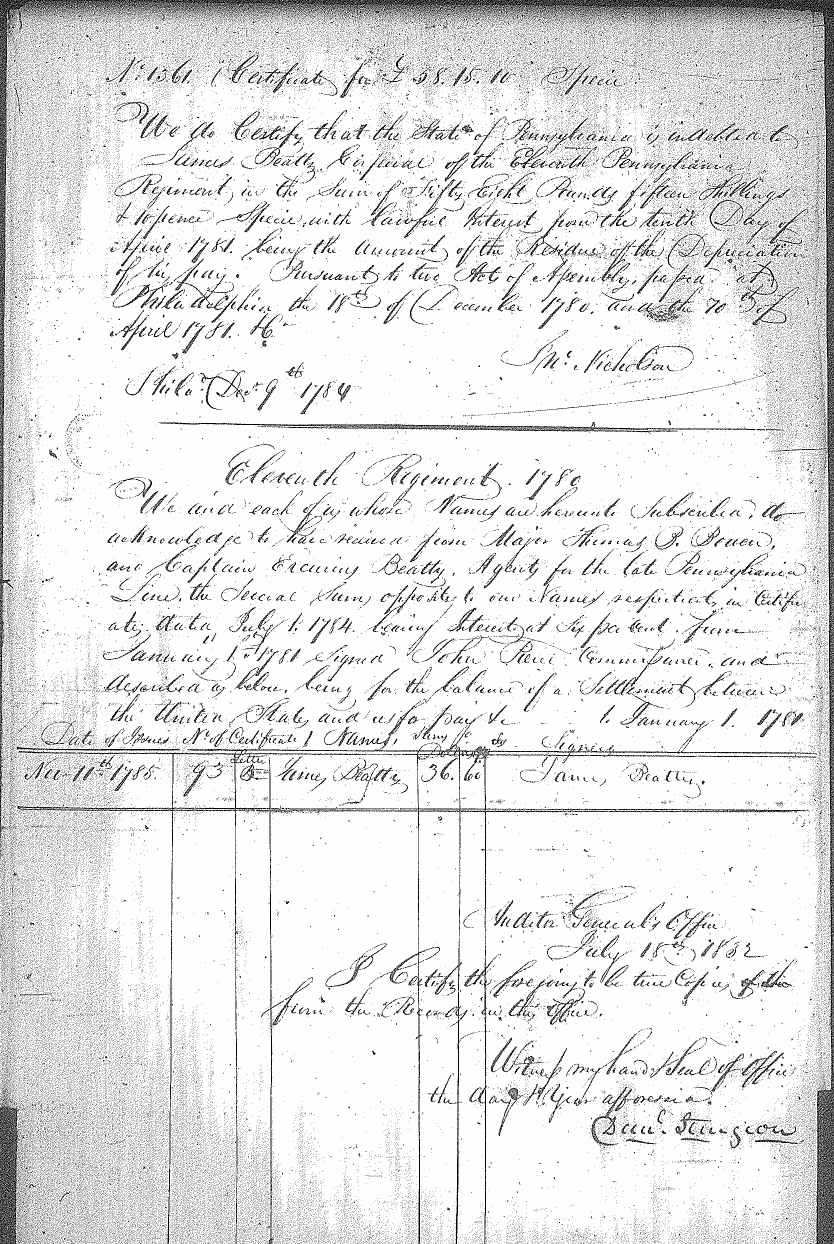 No. 1361. Certificate for £ 58. 15. 10 Specie
We do Certify that the State of Pennsylvania is indebted to
James Beatty Corporal of the Eleventh Pennsylvania
Regiment, in the Sum of Fifty Eight Pounds fifteen Shillings
& 10 pence Specie, with lawful Interest from the tenth Day of
April 1781. being the amount of the Residue of the Depreciation
of his pay. Pursuant to two Acts of Assembly, passed at
Philadelphia the 18th of December 1780. and the 10th of
April 1781. &c
Jno. Nicholson
Phila. Decr. 9th 1784
Eleventh Regiment. 1780
We and each of us whose Names are hereunto Subscribed, do
acknowledge to have received from Major Thomas B. Bowen,
and Captain Ercurius Beatty, Agents for the late Pennsylvania
Line, the Several Sums opposite to our Names respectively, in Certific
ates, dated July 1. 1784. bearing Interest at Six per Cent. from
January 1st 1781 Signed John Pierce Commissioner. and
described as below. being for the balance of a Settlement between
the United States and us for pay &c to January 1. 1781
Date of Issues No. of Certificate Letter Names, Sums Dollars 90ths Signers
Nov. 11th 1785. 93 James Beatty 36. 60 James Beatty.
Auditor General's Office
July 18th 1832
I Certify the foregoing to be true Copies of the
from the Records in this Office.
Witness my hand & Seal of Office
the day & Year aforesaid.
Danl. Sturgeon